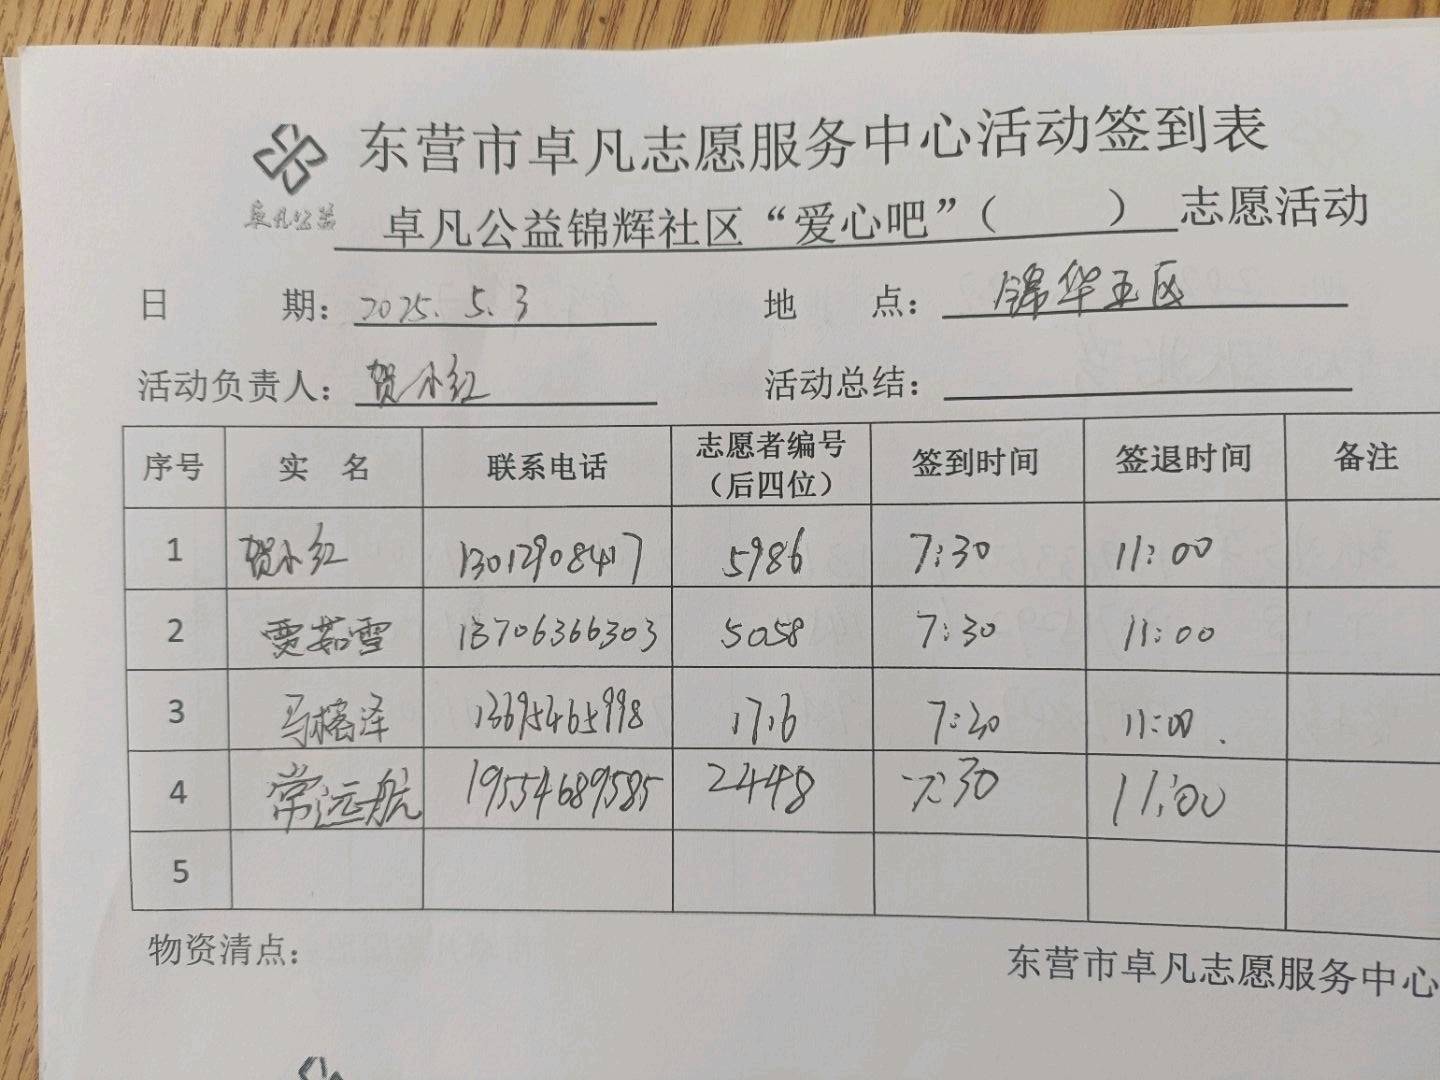 东营市卓凡志愿服务中心活动签到表
卓凡公益
卓凡公益锦辉社区“爱心吧”(          )志愿活动
日 期: 2025.5.3 地 点: 锦华五区
活动负责人: 贺小红 活动总结:
序号 实 名 联系电话 志愿者编号(后四位) 签到时间 签退时间 备注
1 贺小红 13012908417 5986 7:30 11:00
2 贾茹雪 13706366303 5058 7:30 11:00
3 马榕泽 13695465998 1716 7:30 11:00.
4 常远航 19554689585 2448 7:30 11:00
5
物资清点:
东营市卓凡志愿服务中心